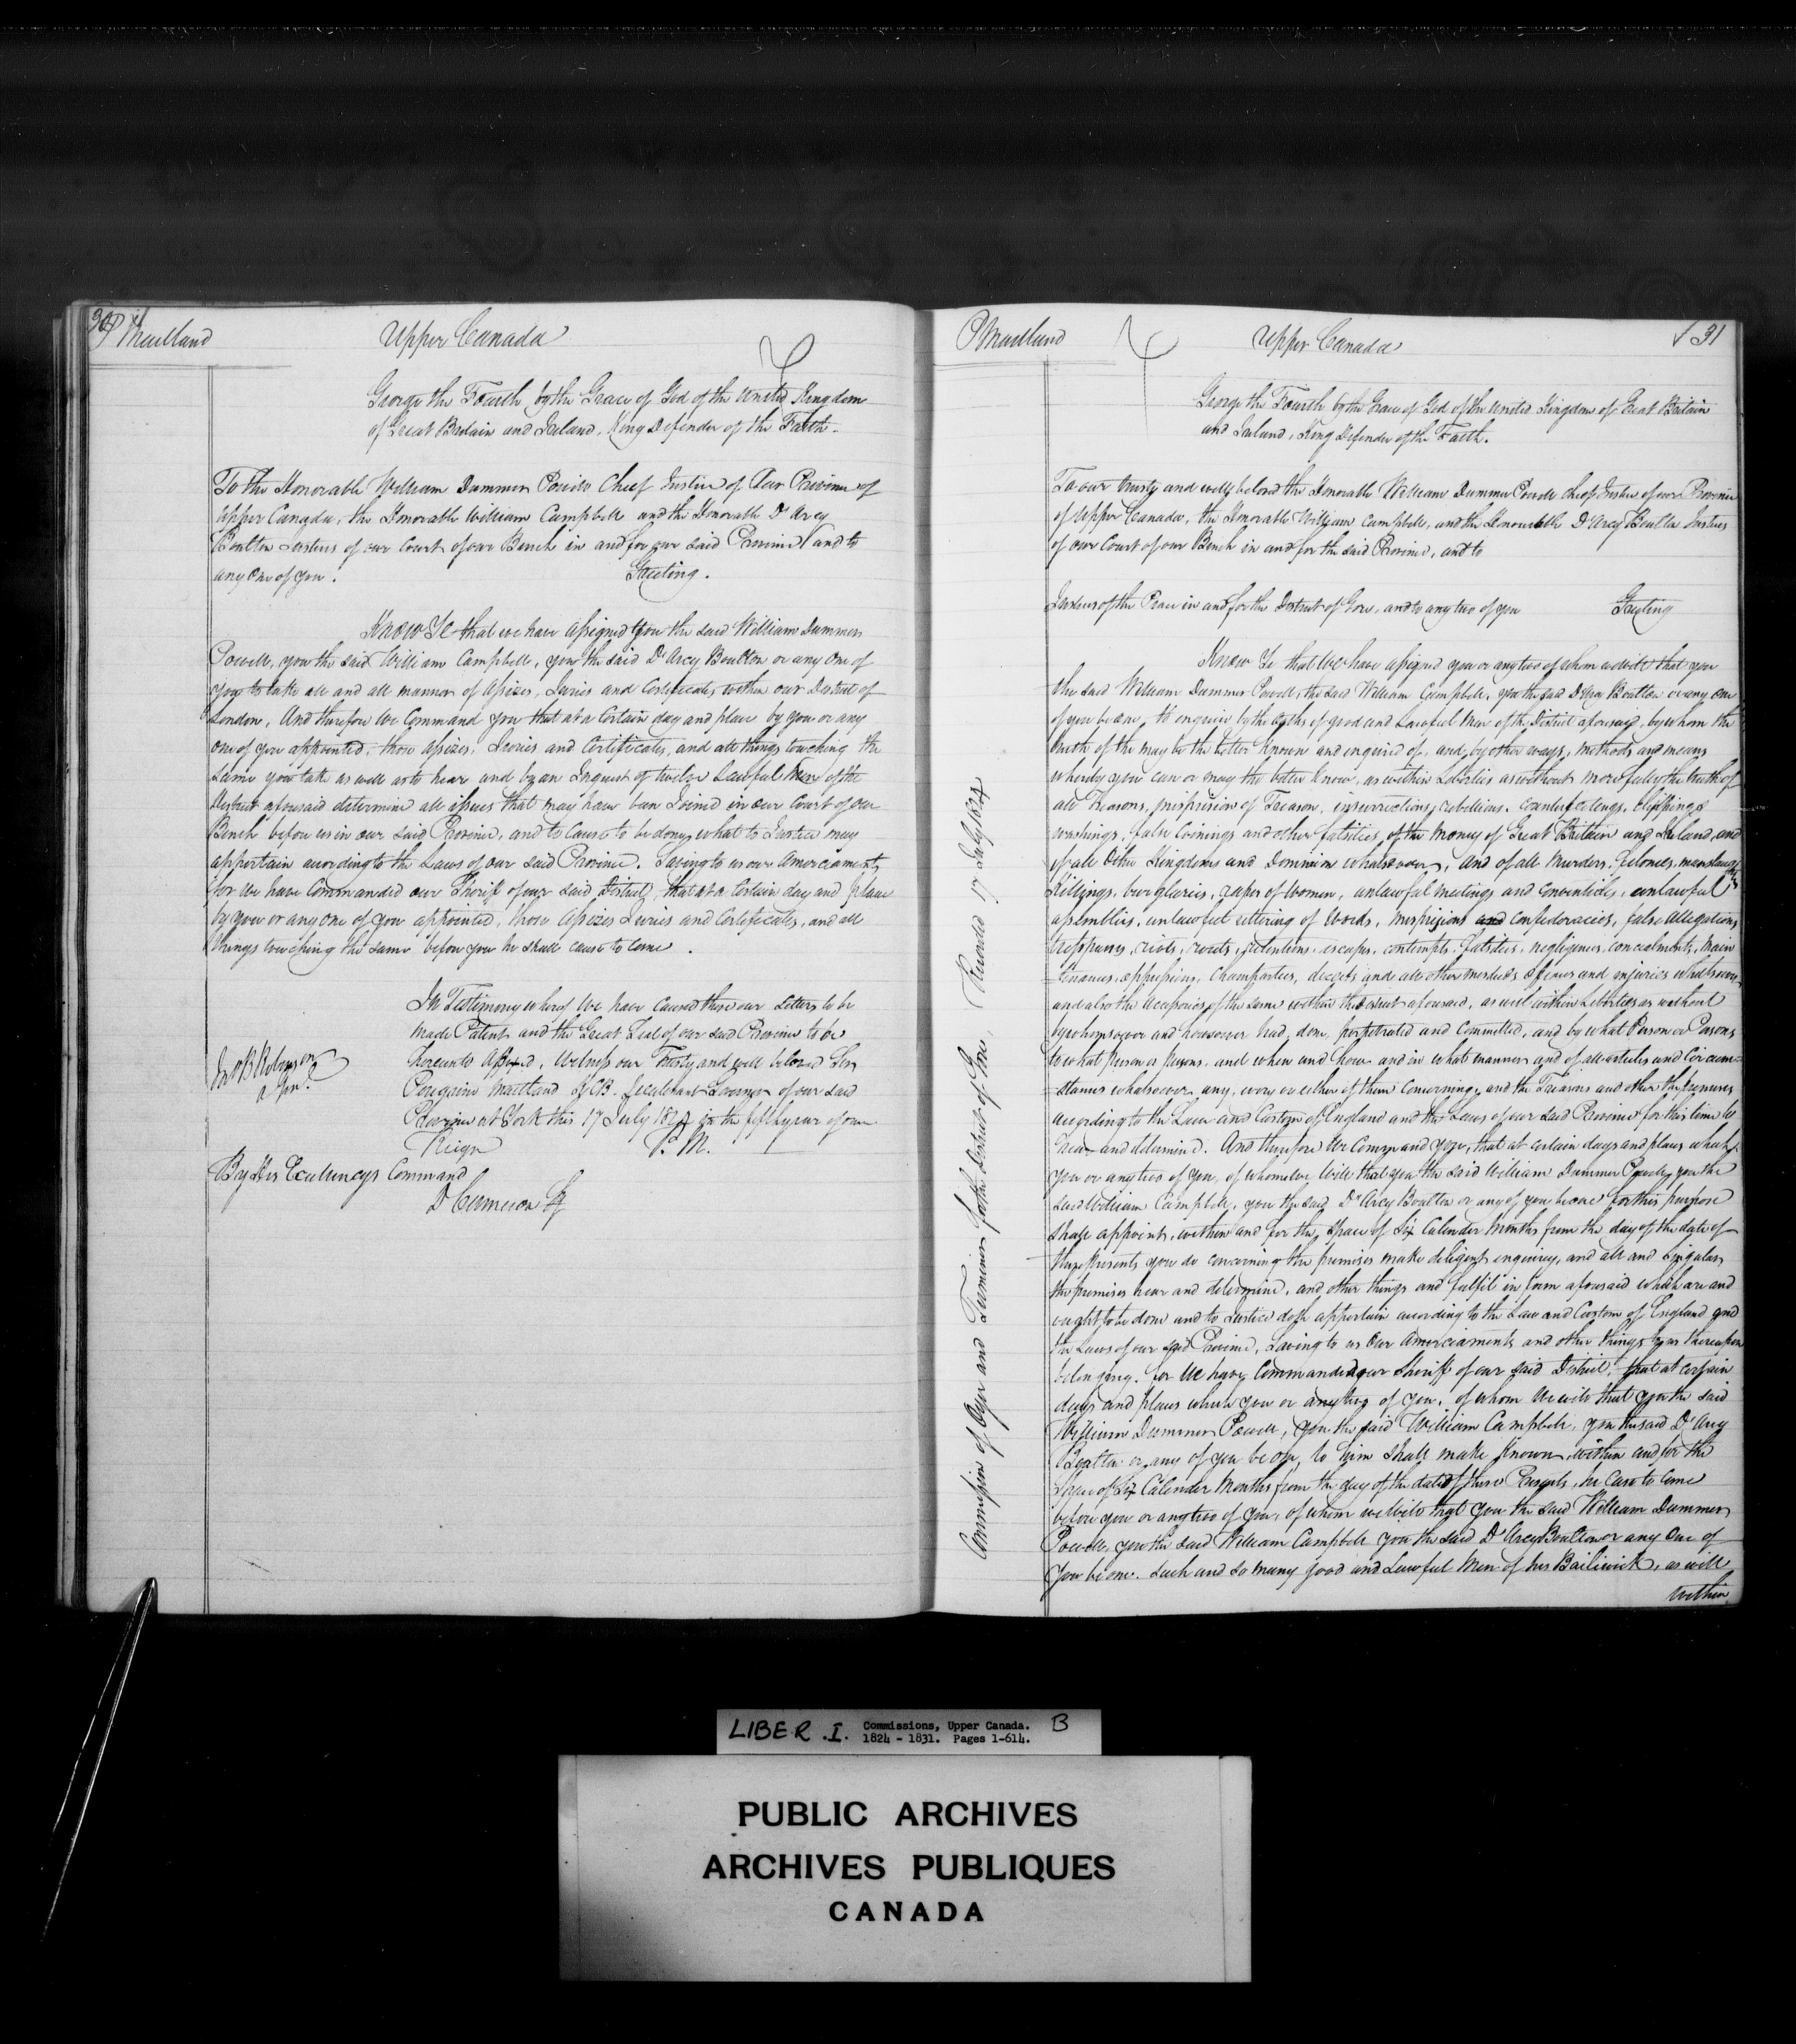 30
P Maitland
Upper Canada
George the Fourth by the Grace of God of the United Kingdom
of Great Britain and Ireland, King Defender of the Faith.
To the Honorable William Dummer Powell Chief Justice of Our Province of
Upper Canada, the Honorable William Campbell and the Honorable D'Arcy
Boulton Justices of our Court of our Bench in and for our said Province and to
any One of you. Greeting.
Know Ye that we have assigned you the said William Dummer
Powell, you the said William Campbell, you the said D'Arcy Boulton or any One of
you to take all and all manner of Assizes, Juries and Certificates, within our District of
London, And therefore We Command you that at a Certain day and place by you or any
one of you appointed, those Assizes, Juries and Certificates, and all things touching the
same you take as well as to hear and by an Inquest of twelve Lawful Men of the
District aforesaid determine all issues that may have been Joined in our Court of our
Bench before us in our said Province, and to Cause to be done, what to Justice may
appertain according to the Laws of our said Province. Saving to us our Amerciaments,
for We have Commanded our Sheriff of our said District, that at a Certain day and place
by you or any one of you appointed, those Assizes Juries and Certificates, and all
things touching the same before you he shall cause to come.
In Testimony whereof We have caused these our Letters to be
made Patent and the Great Seal of our said Province to be
hereunto Affixed, Witness our Trusty and well beloved Sir
Peregrine Maitland K.C.B. Lieutenant Governor of our said
Province at York this 17 July 1824 in the fifth year of our
Reign P. M.
Jno B Robinson
A Gen.
By His Excellencys Command
D Cameron Sy
P Maitland
Upper Canada
31
George the Fourth by the Grace of God of the United Kingdom of Great Britain
and Ireland, King Defender of the Faith.
To our trusty and well beloved the Honorable William Dummer Powell Chief Justice of our Province
of Upper Canada, the Honorable William Campbell, and the Honorable D'Arcy Boulton Justices
of our Court of our Bench in and for the said Province, and to
Justices of the Peace in and for the District of Gore, and to any two of you Greeting
Know Ye that We have assigned you or any two of whom we will that you
the said William Dummer Powell, the said William Campbell, you the said D'Arcy Boulton or any one
of you be one, to enquire by the Oaths of good and Lawful Men of the District aforesaid, by whom the
truth of the may be the better known and enquired of, and, by other ways, methods and means
whereby you can or may the better know, as within Liberties as without more fully the truth of
all Treasons, misprision of Treason, insurrections, rebellions, Counterfeitings, Clippings
washings, false Coinings and other falsities, of the Money of Great Britain and Ireland, and
of all Other Kingdoms and Dominion whatsoever, and of all Murders, Felonies, manslaughters
Killings, burglaries, rapes of Women, unlawful meetings and Conventicles, unlawful
assemblies, unlawful uttering of Words, Misprisions and Confederacies, false allegations
trespasses, riots, routs, retentions, escapes, contempts, falsities, negligences, concealments, Main
-tenances, oppressions, Champerties, deceits and all other misdeeds Offences and injuries whatsoever
and also the Accessories of the same within the District aforesaid, as well within Liberties as without
by whomsoever and howsoever had, done, perpetrated and Committed, and by what Person or Persons
to what Person or Persons, and when and how and in what manner, and of all articles and Circum=
=stances whatsoever, any, every or either of them Concerning, and the Treasons and other the premises
according to the Law and Custom of England and the Laws of our said Province for this time to
hear and determine. And therefore We Command you, that at certain days and places which
you or any two of you, of whom we Will that you the said William Dummer Powell, you the
said William Campbell, you the said D'Arcy Boulton or any of you be one for this purpose
shall appoint, within and for the space of Six Calender Months from the day of the date of
these Presents you do concerning the premises make diligent enquiry, and all and singular
the premises hear and determine, and other things and fulfil in form aforesaid which are and
ought to be done and to Justice doth appertain according to the Law and Custom of England and
the Laws of our said Province, Saving to us Our Amerciaments and other things to us thereupon
belonging. for We have Commanded our Sheriff of our said District, that at certain
days and places which you or any two of you, of whom We will that you the said
William Dummer Powell, you the said William Campbell, you the said D'Arcy
Boulton or any of you be one, to him shall make known, within and for the
Space of Six Calender Months from the day of the date of these Presents, he Cause to Come
before you or any two of you, of whom we Will that you the said William Dummer
Powell, you the said William Campbell you the said D'Arcy Boulton or any One of
you be one. Such and so many good and Lawful Men of his Bailiwick, as will
within
Commission of Oyer and Terminer for the District of Gore, Recorded 17 July 1824
LIBER .I. Commissions, Upper Canada. B
1824 - 1831. Pages 1-614.
PUBLIC ARCHIVES
ARCHIVES PUBLIQUES
CANADA